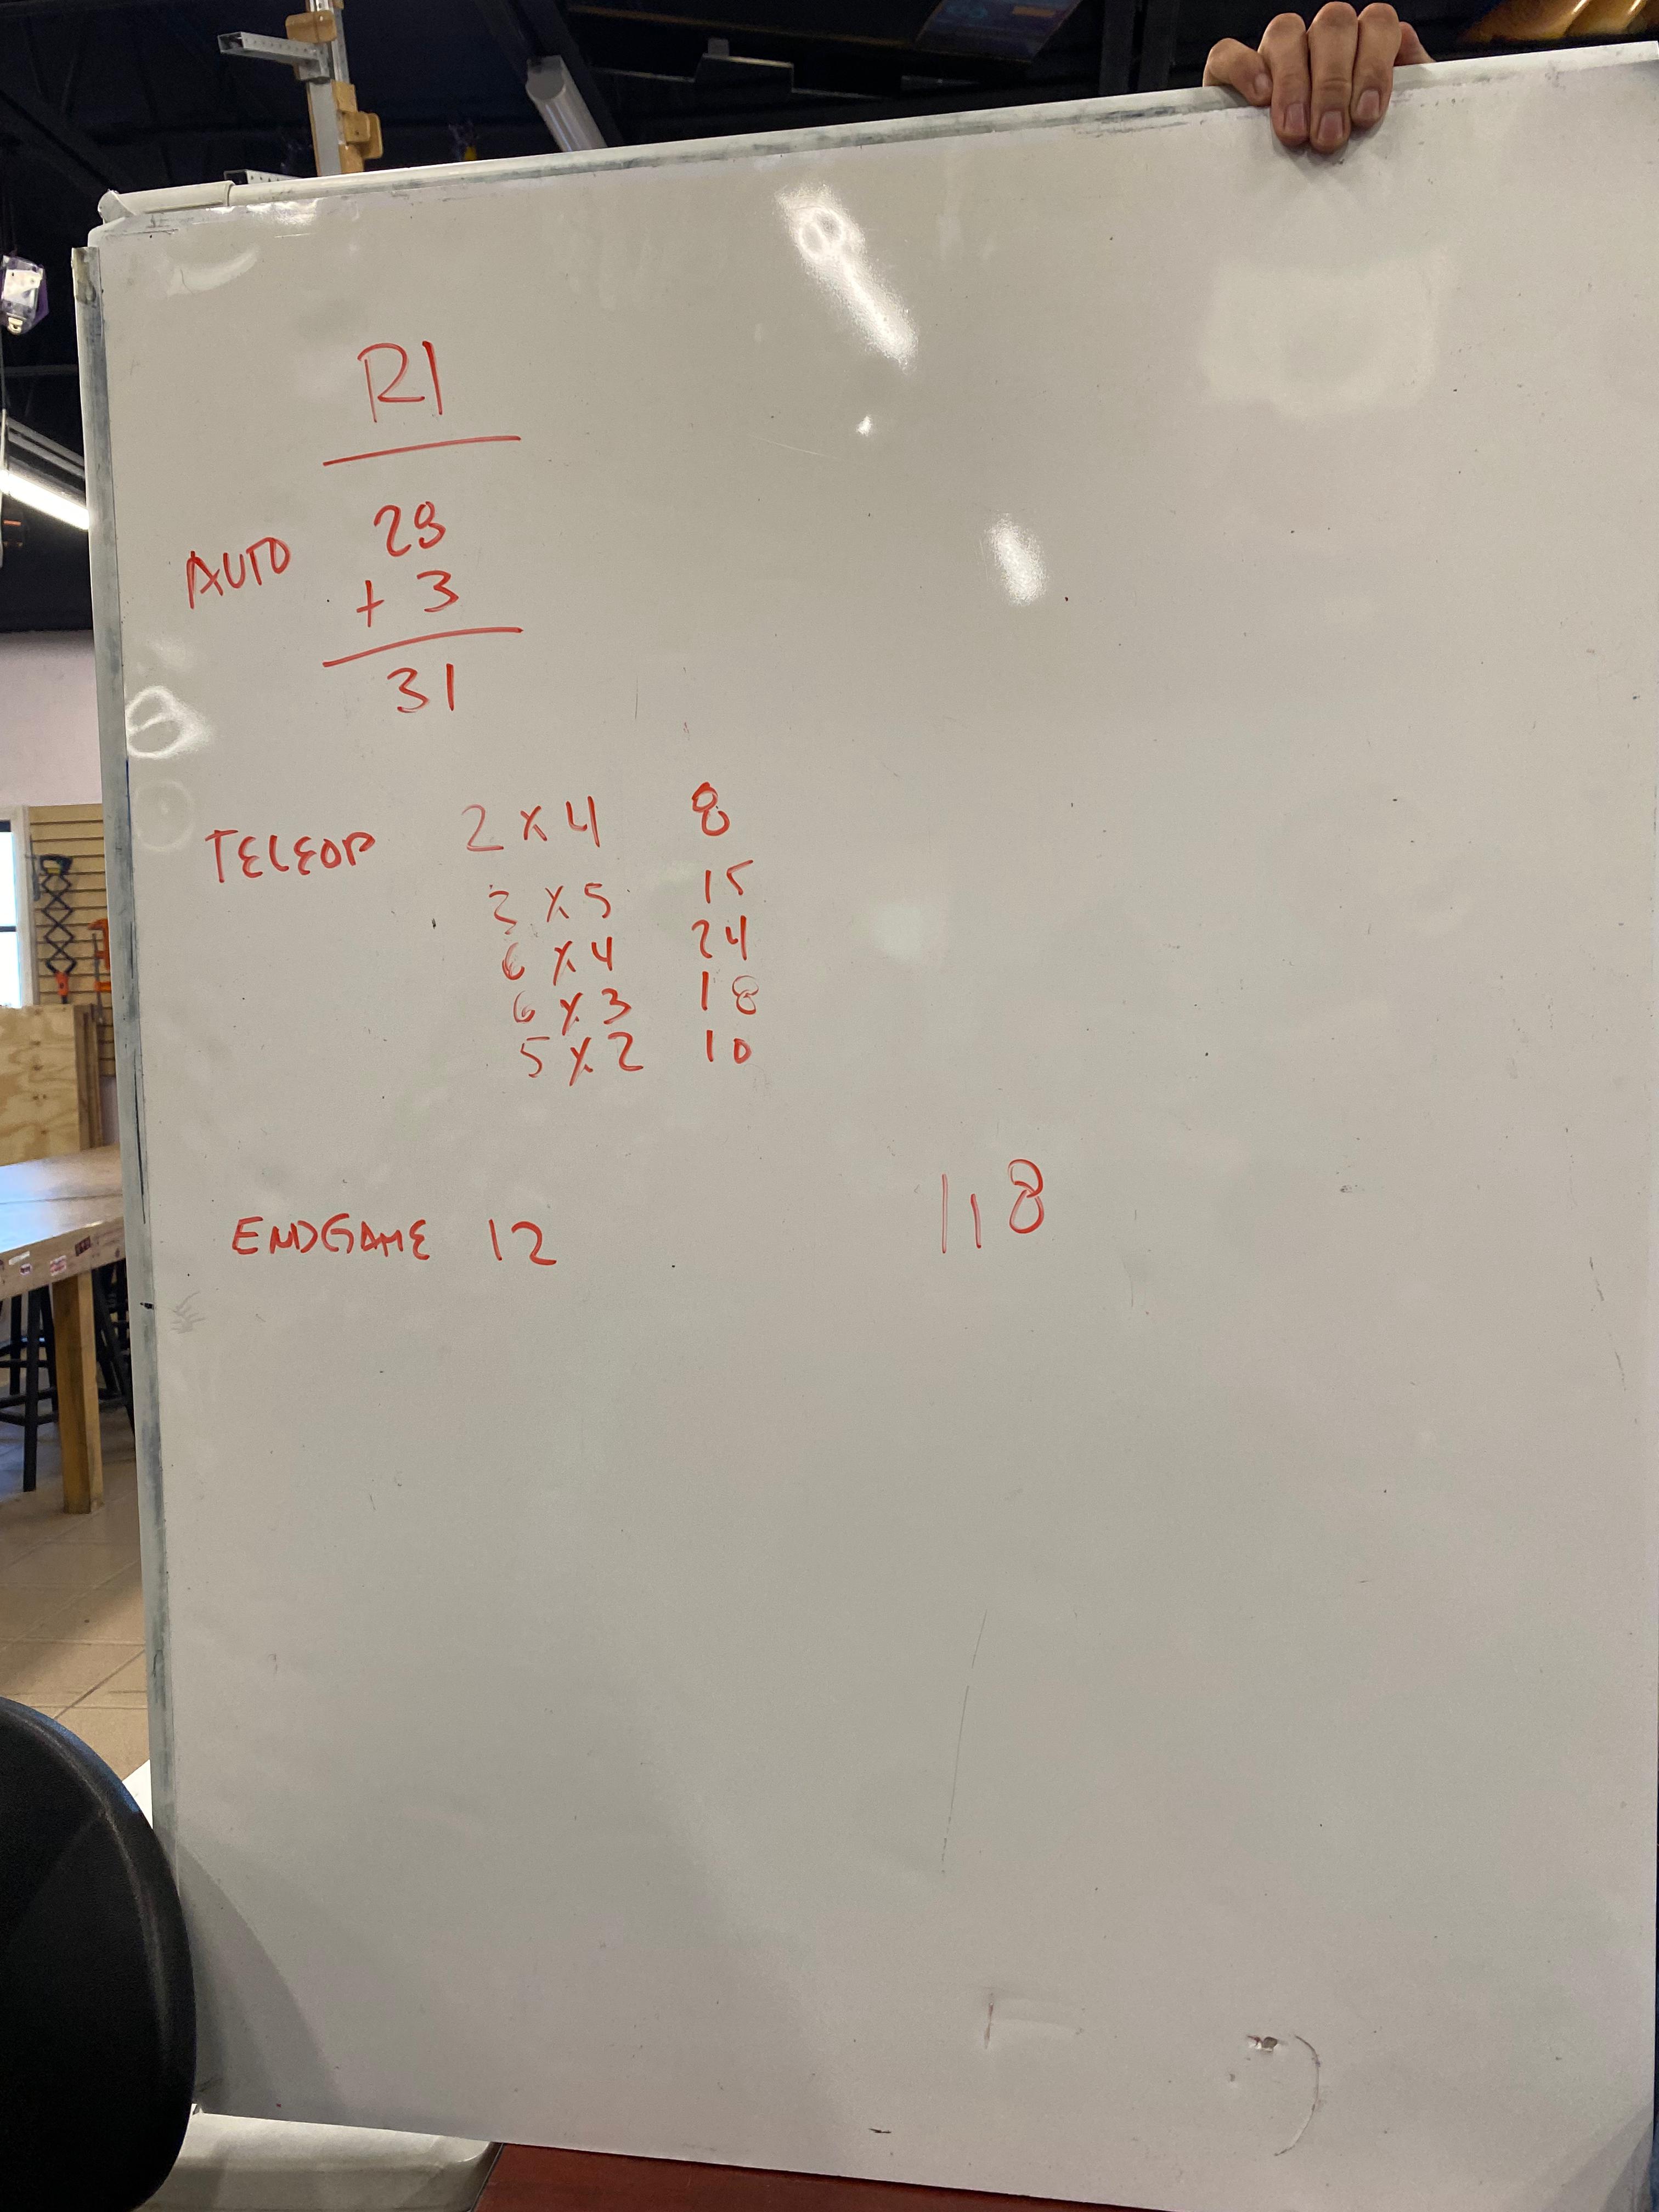 R1
AUTO 28
+ 3
31
TELEOP 2 x 4 8
3 x 5 15
6 x 4 24
6 x 3 18
5 x 2 10
ENDGAME 12 118